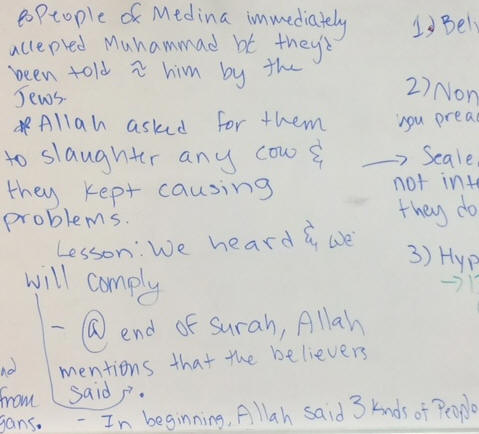 People of Medina immediately
accepted Muhammad bc they'd
been told ~ him by the
Jews.
* Allah asked for them
to slaughter any cow &
they kept causing
problems.
Lesson: We heard & we
will comply
- @ end of surah, Allah
mentions that the believers
said ↗.
- In beginning, Allah said 3 kinds of People
from
gans.
1) Beli
2) Non
you prea
→ Seale
not inte
they do
3) Hyp
→